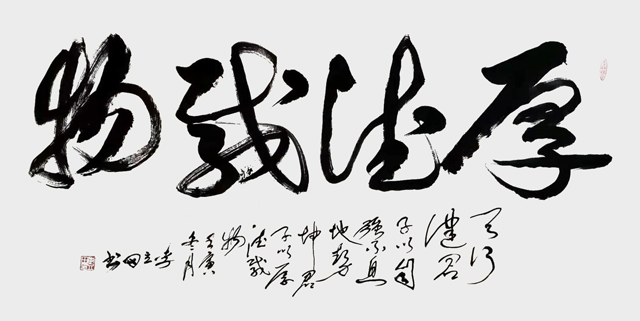 厚德载物
天行
健君
子以自
强不息
地势
坤君
子以厚
德载
物
壬寅
冬月
书